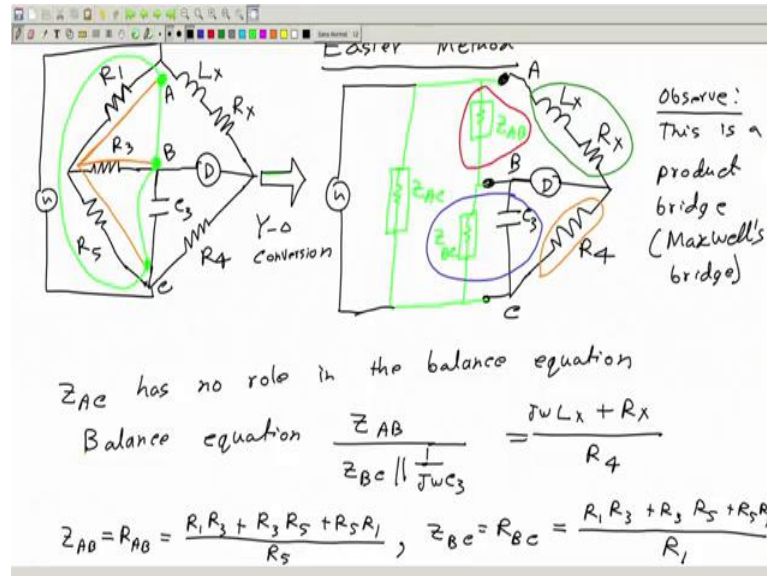 Easier Method
R1
Lx
Rx
A
R3
B
D
R5
C3
R4
C
Y-Δ
Conversion
A
Lx
Rx
ZAB
B
D
ZAC
ZBC
C3
R4
C
Observe:
This is a
product
bridge
(Maxwell's
bridge)
ZAC has no role in the balance equation
Balance equation ZAB / (ZBC || 1/JωC3) = (JωLx + Rx) / R4
ZAB = RAB = (R1R3 + R3R5 + R5R1) / R5 , ZBC = RBC = (R1R3 + R3R5 + R5R / R1